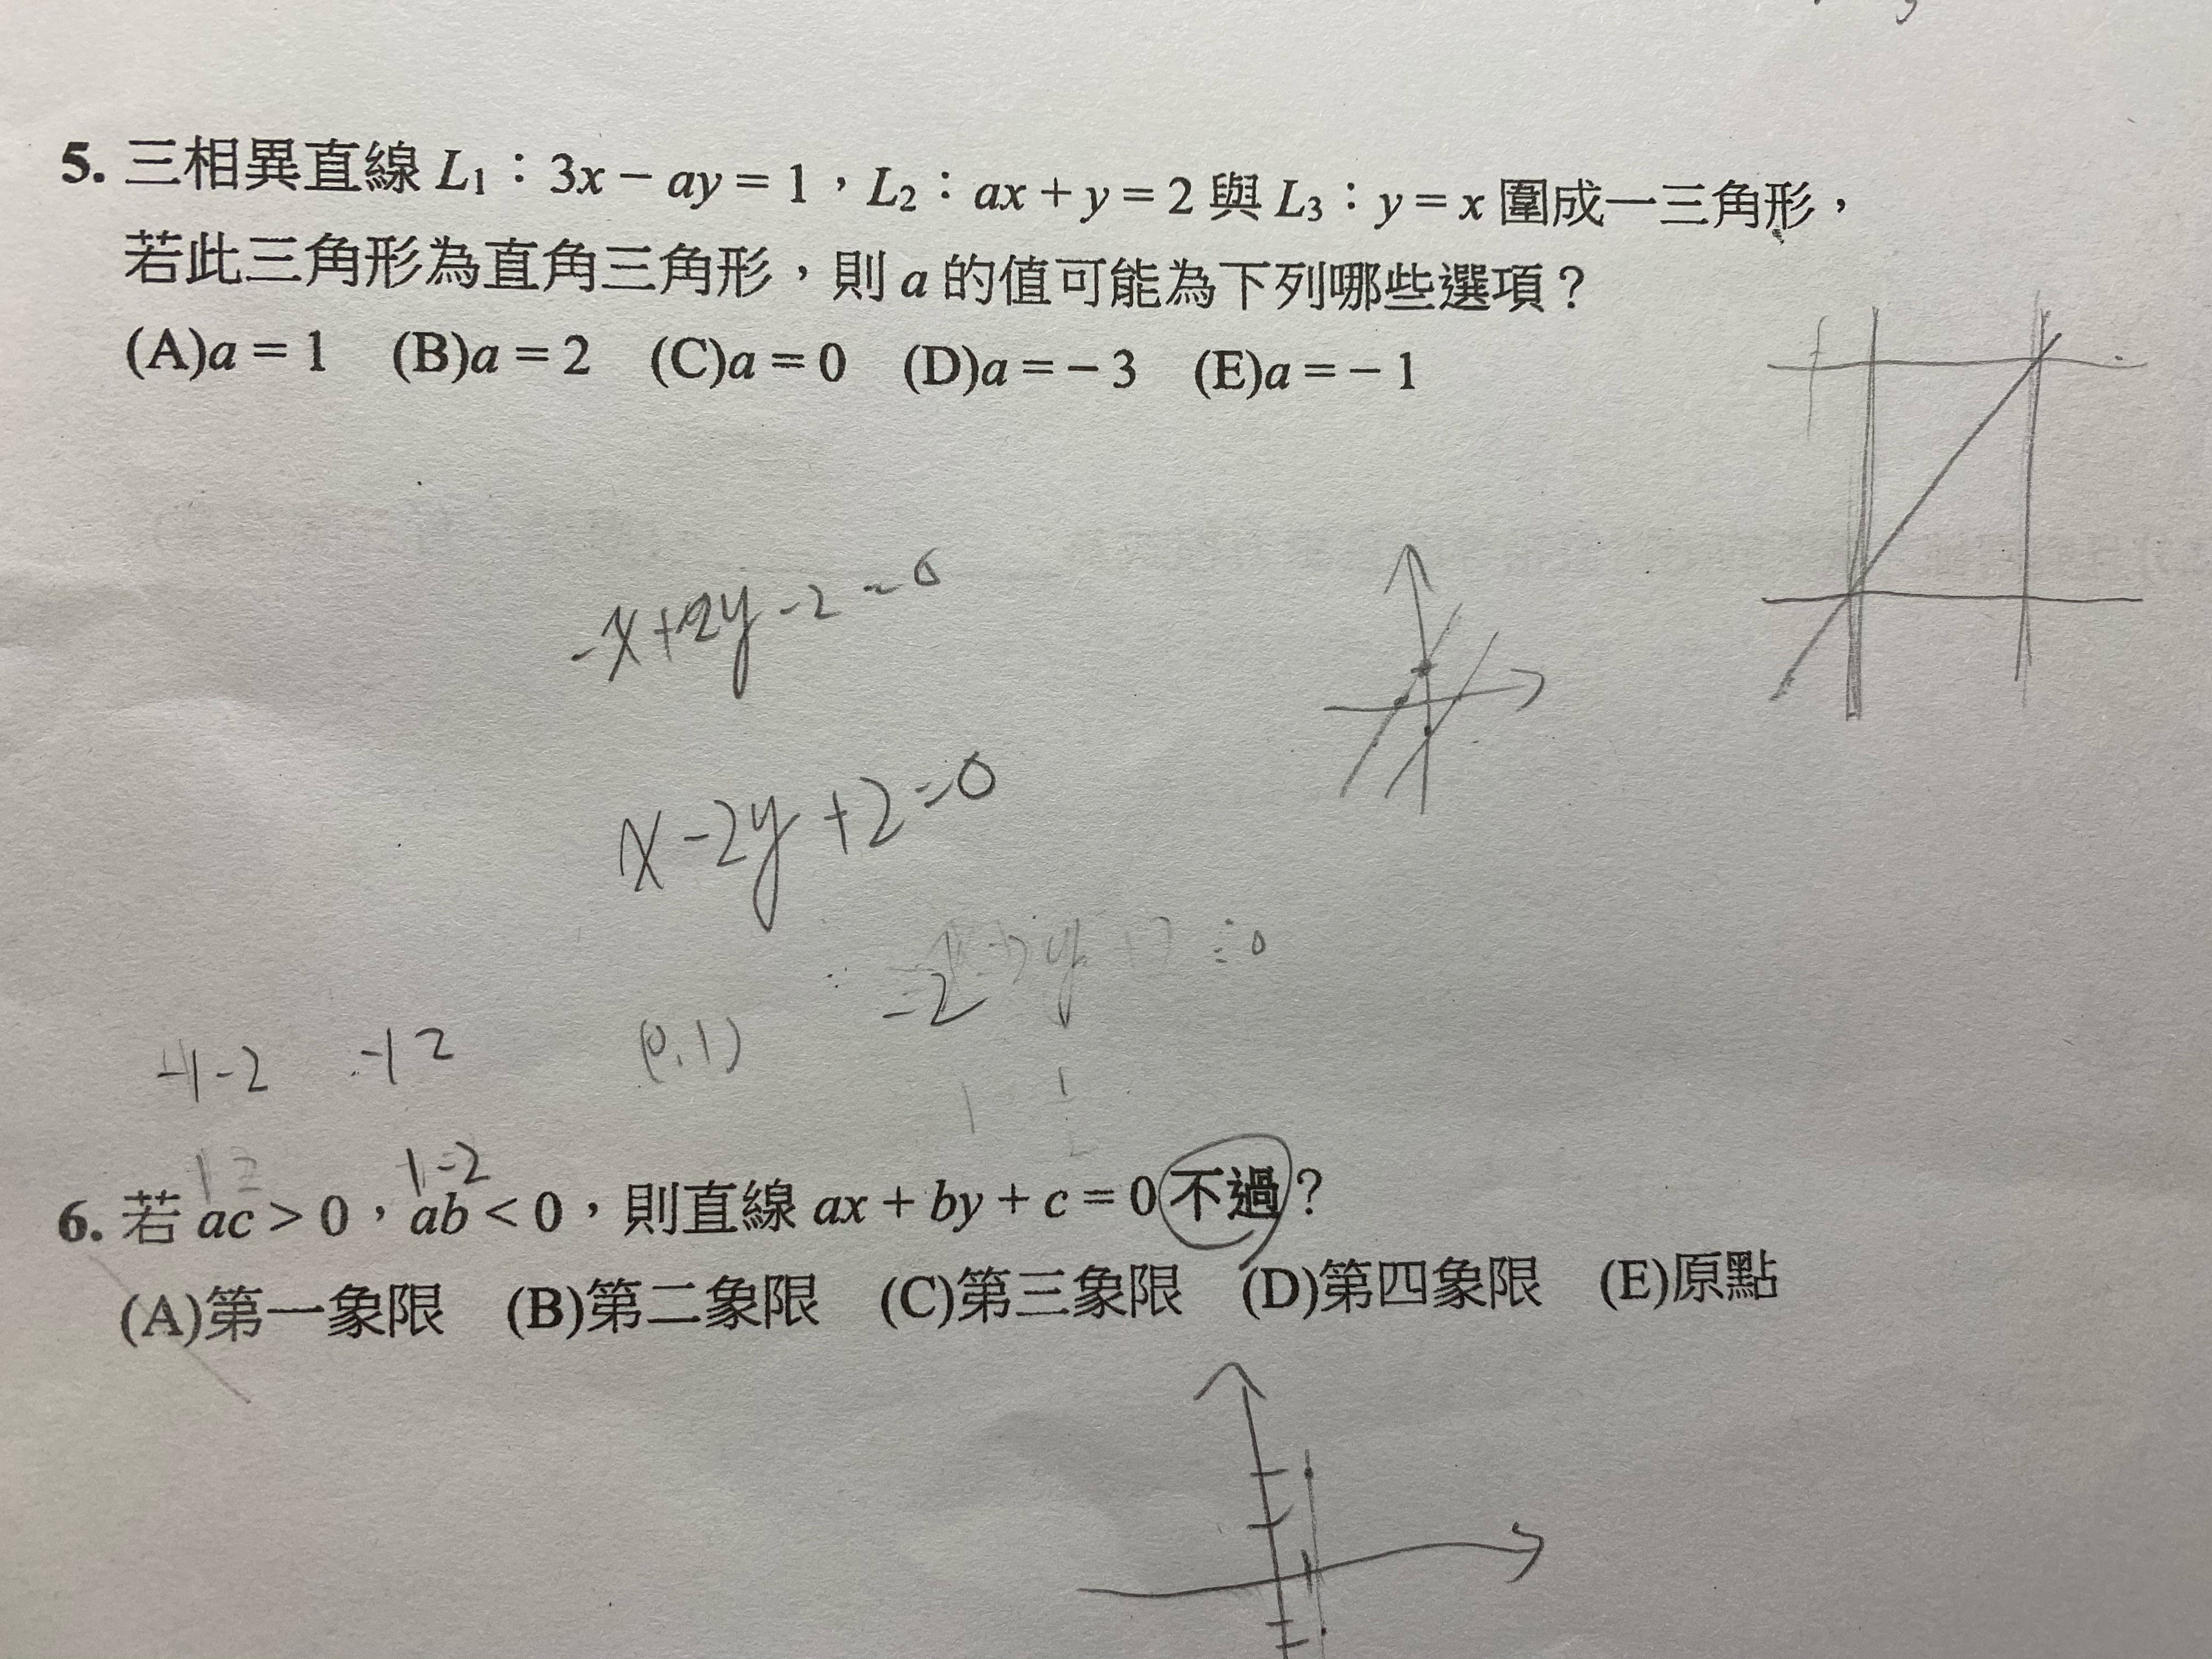 5. 三相異直線 L₁：3x − ay = 1，L₂：ax + y = 2 與 L₃：y = x 圍成一三角形，
若此三角形為直角三角形，則 a 的值可能為下列哪些選項？
(A)a = 1 (B)a = 2 (C)a = 0 (D)a = − 3 (E)a = − 1
-x+2y-2=0
x-2y+2=0
-2
-1-2 -12 (0,1)
12 1-2
6. 若 ac > 0，ab < 0，則直線 ax + by + c = 0 不過？
(A)第一象限 (B)第二象限 (C)第三象限 (D)第四象限 (E)原點